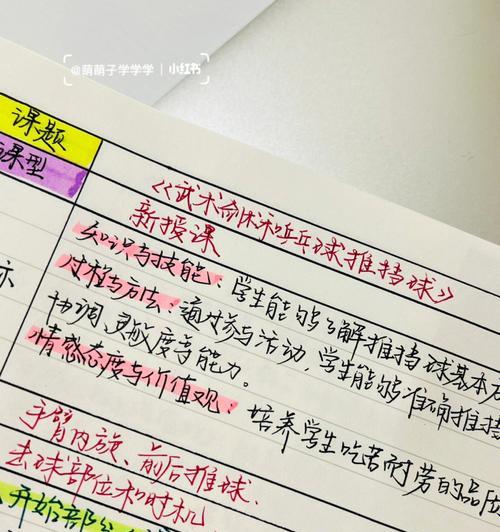 @萌萌子学学学 | 小红书
课题
《武术俞休和乒乓球推挡球》
课型
新授课
知识与技能：学生能够了解推挡球基本方
过程与方法：通过参与活动，学生能够准确推挡
协调、灵敏度等能力。
情感态度与价值观：培养学生吃苦耐劳的品质
手臂内旋、前后推球、
去球部位和时机
开始部分